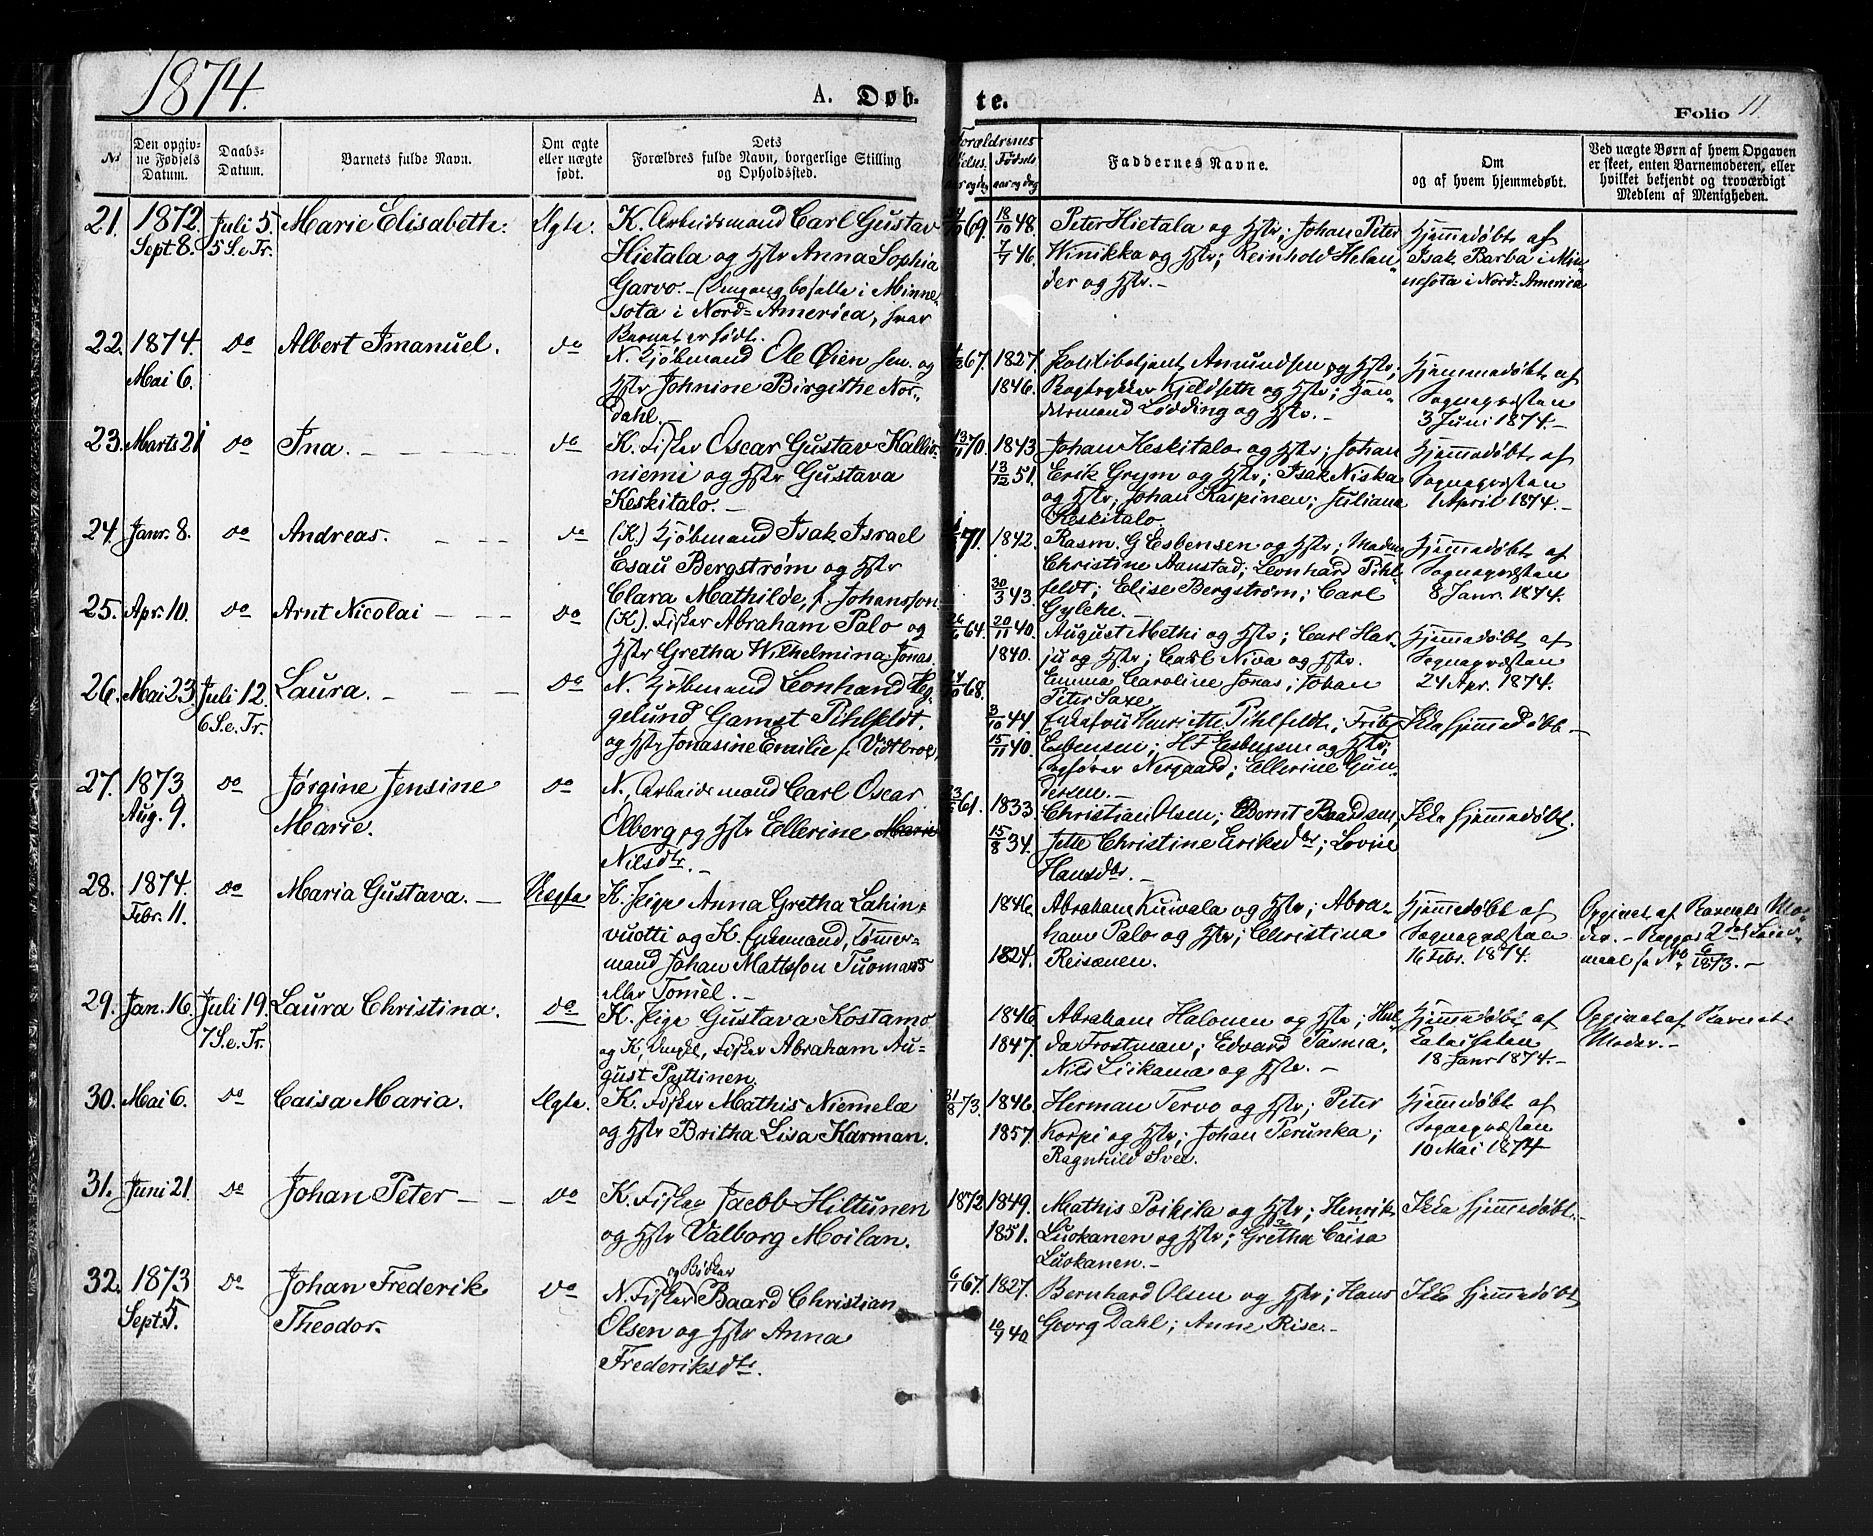 1874.
A. Døb-
te.
Folio 11
№
Den opgiv-
ne Fødsels
Datum.
Daabs-
Datum.
Barnets fulde Navn.
Om ægte
eller uægte
født.
Dets
Forældres fulde Navn, borgerlige Stilling
og Opholdssted.
Forældrenes
Fødsels
aar og dag
Faddernes Navne.
Om
og af hvem hjemmedøbt.
Ved uægte Børn af hvem Opgaven
er skeet, enten Barnemoderen, eller
hvilket bekjendt og troværdigt
Medlem af Menigheden.
21. 1872. Sept 8. Juli 5. 5 S. e. Tr. Marie Elisabeth. Ægte.
K. Arbeidsmand Carl Gustav
Hietala og Hstr Anna Sophia
Garvo. – (Dengang bosatte i Minne-
sota i Nord-America, hvor
Barnet er født.
69. 18/10 48. 7/7 46.
Peter Hietala og Hstr; Johan Peter
Winikka og Hstr; Reinhold Helan-
der og Hstr. –
Hjemmedøbt af
Isak Barba i Min-
nesota i Nord-America
22. 1874. Mai 6. do Albert Imanuel. do
N. Kjøbmand Ole Øien sen. og
Hstr Johnine Birgithe Nor-
dahl. –
67. 1827. 1846.
Politibetjent Amundsen og Hstr;
Bogtrykker Kjeldseth og Hstr; Han-
delsmand Lødding og Hstr. –
Hjemmedøbt af
Sognepræsten
3 Juni 1874. –
23. Marts 21 do Ina. – do
K. Fisker Oscar Gustav Kallio-
niemi og Hstr Gustava
Keskitalo. –
13/11 70. 1843. 13/12 51.
Johan Keskitalo og Hstr; Johan
Erik Grym og Hstr; Isak Niska
og Hstr; Johan Kaspinen; Juliana
Keskitalo.
Hjemmedøbt af
Sognepræsten
1 April 1874. –
24. Janr. 8. do Andreas. – do
(K.) Kjøbmand Isak Israel
Esau Bergstrøm og Hstr
Clara Mathilde, f. Johansson.
71. 1842. 30/3 43.
Rasm. G Esbensen og Hstr; Madm
Christine Aanstad; Leonhard Pihl-
feldt; Elise Bergstrøm; Carl
Gylche. –
Hjemmedøbt af
Sognepræsten
8 Janr. 1874.
25. Apr. 10. do Arnt Nicolai – do
(K.) Fisker Abraham Palo og
Hstr Gretha Wilhelmina Jonas.
64. 20/11 40. 1840.
August Methi og Hstr; Carl Har-
ju og Hstr; Carl Niva og Hstr.
Emma Caroline Jonas; Johan
Peter Saxe.
Hjemmedøbt af
Sognepræsten
24 Apr. 1874.
26. Mai 23. Juli 12. 6 S. e. Tr. Laura. – do
N. Kjøbmand Leonhard Heg-
gelund Gamst Pihlfeldt.
og Hstr Jonasine Emilie f. Vidtbroe.
68. 3/10 44. 15/11 40.
Enkefru Henriette Pihlfeldt; Frits
Esbensen; H F Esbensen og Hstr;
Sagfører Nergaard; Ellerine Gun-
dersen. –
Ikke hjemmedøbt. –
27. 1873 Aug. 9. do Jørgine Jensine
Marie. do
N. Arbeidsmand Carl Oscar
Ølberg og Hstr Ellerine Marie
Nilsdtr. –
61. 1833. 15/8 34.
Christian Olsen; Bernt Baardsen,
Jette Christine Eriksdtr; Lovise
Hansdtr. –
Ikke hjemmedøbt.
28. 1874. Febr. 11. do Maria Gustava. – Uægte
K. Pige Anna Gretha Lahin-
vuotti og K. Enkemand, Tømmer-
mand Johan Mattsson Tuomans
eller Tomèl. –
1846. 1824.
Abraham Kuivala og Hstr; Abra-
ham Palo og Hstr; Christina
Reisænen.
Hjemmedøbt af
Sognepræsten
16 Febr. 1874.
Opgivet af Barnets Mo-
der. –
29. Jan. 16. Juli 19. 7 S. e. Tr. Laura Christina. do
K. Pige Gustava Kostamo
og K. Ungkl., Fisker Abraham Au-
gust Pyttinen.
1846. 1847.
Abraham Halonen og Hstr; Hul-
da Frostman; Edvard Parma,
Nils Liikama og Hstr. –
Hjemmedøbt af
18 Janr 1874. –
Opgivet af Barnets
Moder. –
30. Mai 6. do Caisa Maria. Ægte.
K. Fisker Mathis Niemelæ
og Hstr Britha Lisa Karman.
31/8 73. 1846. 1857.
Herman Tervo og Hstr; Peter
Korpi og Hstr; Johan Perunka;
Ragnhild Svee.
Hjemmedøbt af
Sognepræsten
10 Mai 1874
31. Juni 21 do Johan Peter – do
K. Fisker Jacob Hiltunen
og Hstr Valborg Moilan.
1872 1849. 1851.
Mathis Poikila og Hstr; Henrik
Luokanen og Hstr; Gretha Caisa
Luokanen. –
Ikke hjemmedøbt. –
32. 1873 Sept 5. do Johan Frederik
Theodor. do
og Bødker
N. Fisker Baard Christian
Olsen og Hstr Anna
Frederiksdtr.
6/1 67. 1827. 10/9 40
Bernhard Olsen og Hstr; Hans
Georg Dahl; Anne Rise. –
Ikke hjemmedøbt